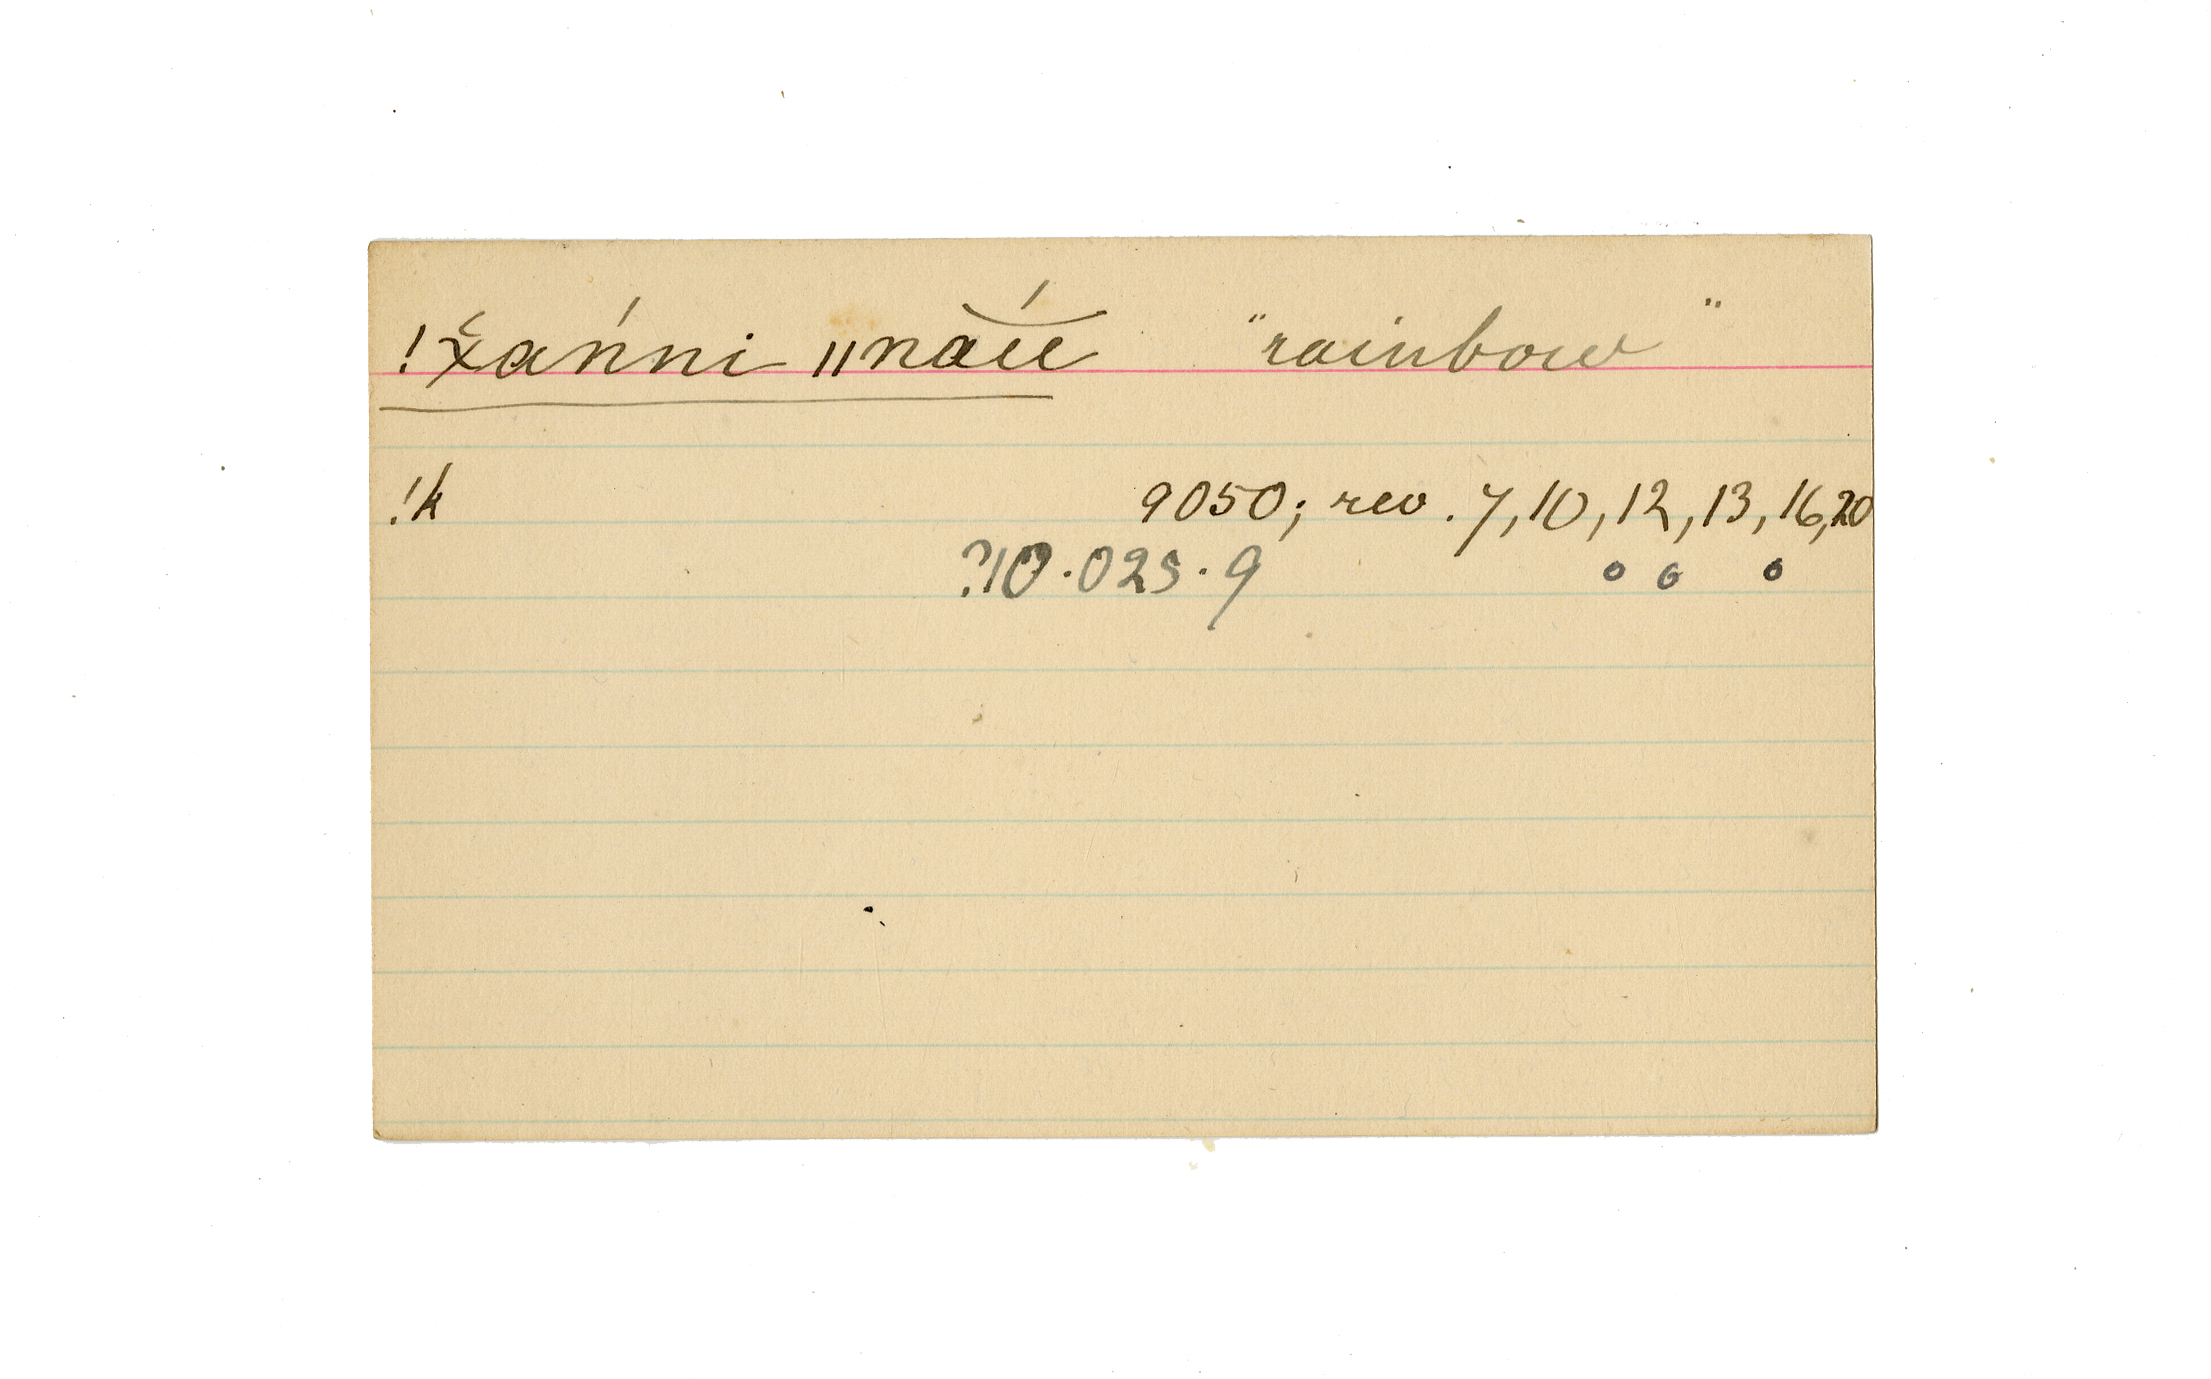 !χ̆ańni ǁnăĭĕ́ "rainbow"
!k 9050; rev. 7, 10, 12, 13, 16, 20
?10.025.9 o o o